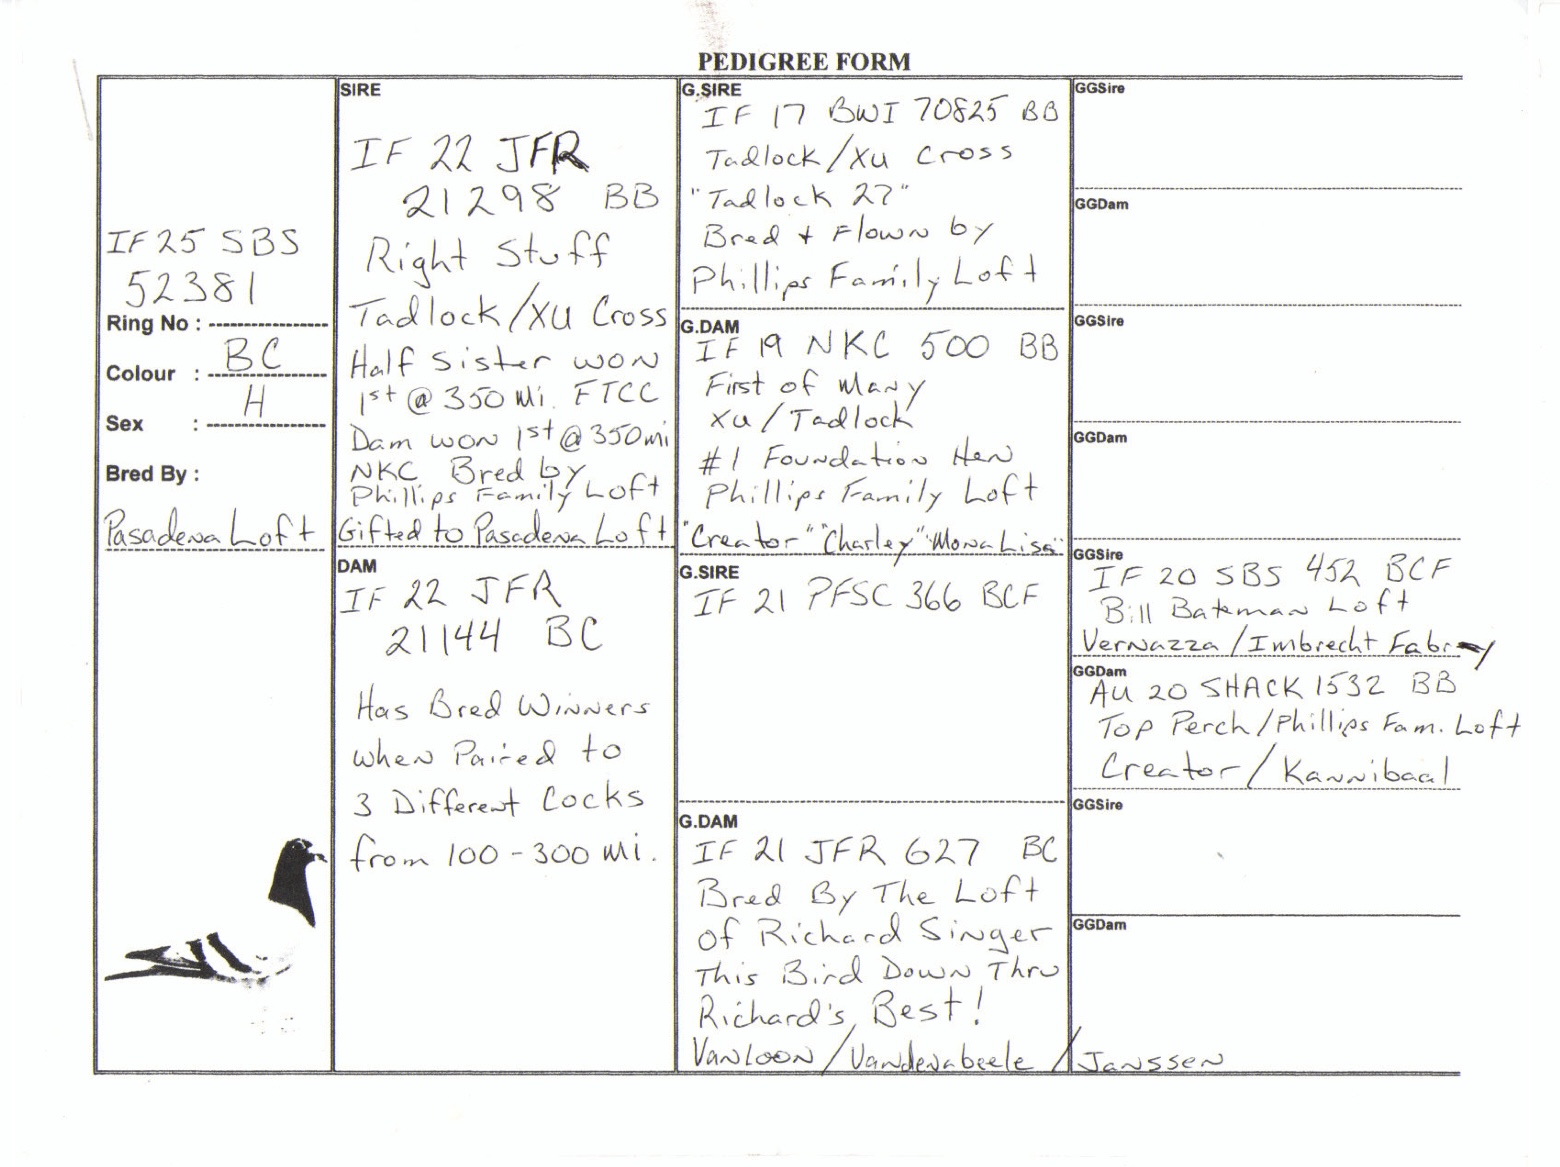 PEDIGREE FORM
IF 25 SBS
52381
Ring No :
Colour : BC
Sex : H
Bred By :
Pasadena Loft
SIRE
IF 22 JFR
21298 BB
Right Stuff
Tadlock/XU Cross
Half Sister won
1st @ 350 Mi. FTCC
Dam won 1st @ 350 mi
NKC Bred by
Phillips Family Loft
Gifted to Pasadena Loft
DAM
IF 22 JFR
21144 BC
Has Bred Winners
when Paired to
3 Different Cocks
from 100 - 300 Mi.
G.SIRE
IF 17 BWI 70825 BB
Tadlock/Xu Cross
"Tadlock 27"
Bred + Flown by
Phillips Family Loft
G.DAM
IF 19 NKC 500 BB
First of Many
Xu/Tadlock
#1 Foundation Hen
Phillips Family Loft
"Creator" "Charley" "Mona Lisa"
G.SIRE
IF 21 PFSC 366 BCF
G.DAM
IF 21 JFR 627 BC
Bred By The Loft
of Richard Singer
This Bird Down Thru
Richard's Best!
VanLoon/Vandenabeele/Janssen
GGSire
GGDam
GGSire
GGDam
GGSire
IF 20 SBS 452 BCF
Bill Bateman Loft
Vernazza/Imbrecht Fabry
GGDam
AU 20 SHACK 1532 BB
Top Perch/Phillips Fam. Loft
Creator/Kannibaal
GGSire
GGDam